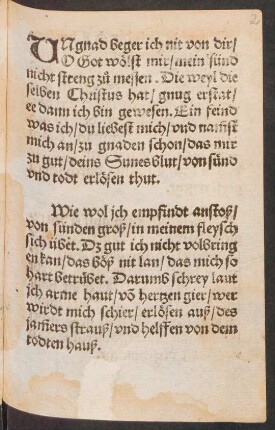 UNgnad beger ich nit von dir/
O Got wölst mir/mein sünd
nicht streng zů messen. Die weyl die
selben Christus hat/gnug erstat/
ee dann ich bin gewesen. Ein feind
was ich/du liebest mich/und namst
mich an/zu gnaden schon/das nur
zu gut/deins Sunes blut/von sünd
vnd todt erlösen thut.
Wie wol jch empfindt anstoß/
von sünden groß/in meinem fleysch
sich übet. Dz gut ich nicht volbring
en kan/das böß nit lan/das mich so
hart betrübet. Darumb schrey laut
ich arme haut/võ hertzen gier/wer
wirdt mich schier/erlösen auß/des
jamers strauß/vnd helffen von dem
todten hauß.